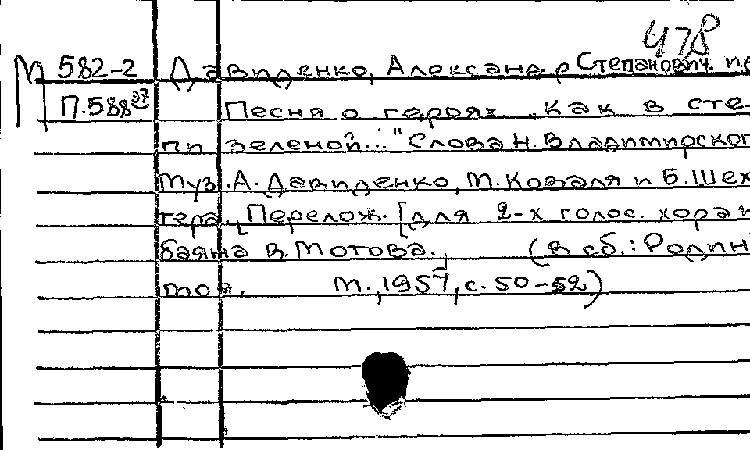 478
М 582-2 Давиденко, Александр Степанович.
П.588 27 Песня о героях „Как в сте-
пи зеленой..." Слова Н. Владимирского
Муз. А. Давиденко, М. Коваля и Б. Шех-
тера. Перелож. [для 2-х голос. хора и
баяна В. Мотова. (В сб.: Родин
М., 1957, с. 50-52)